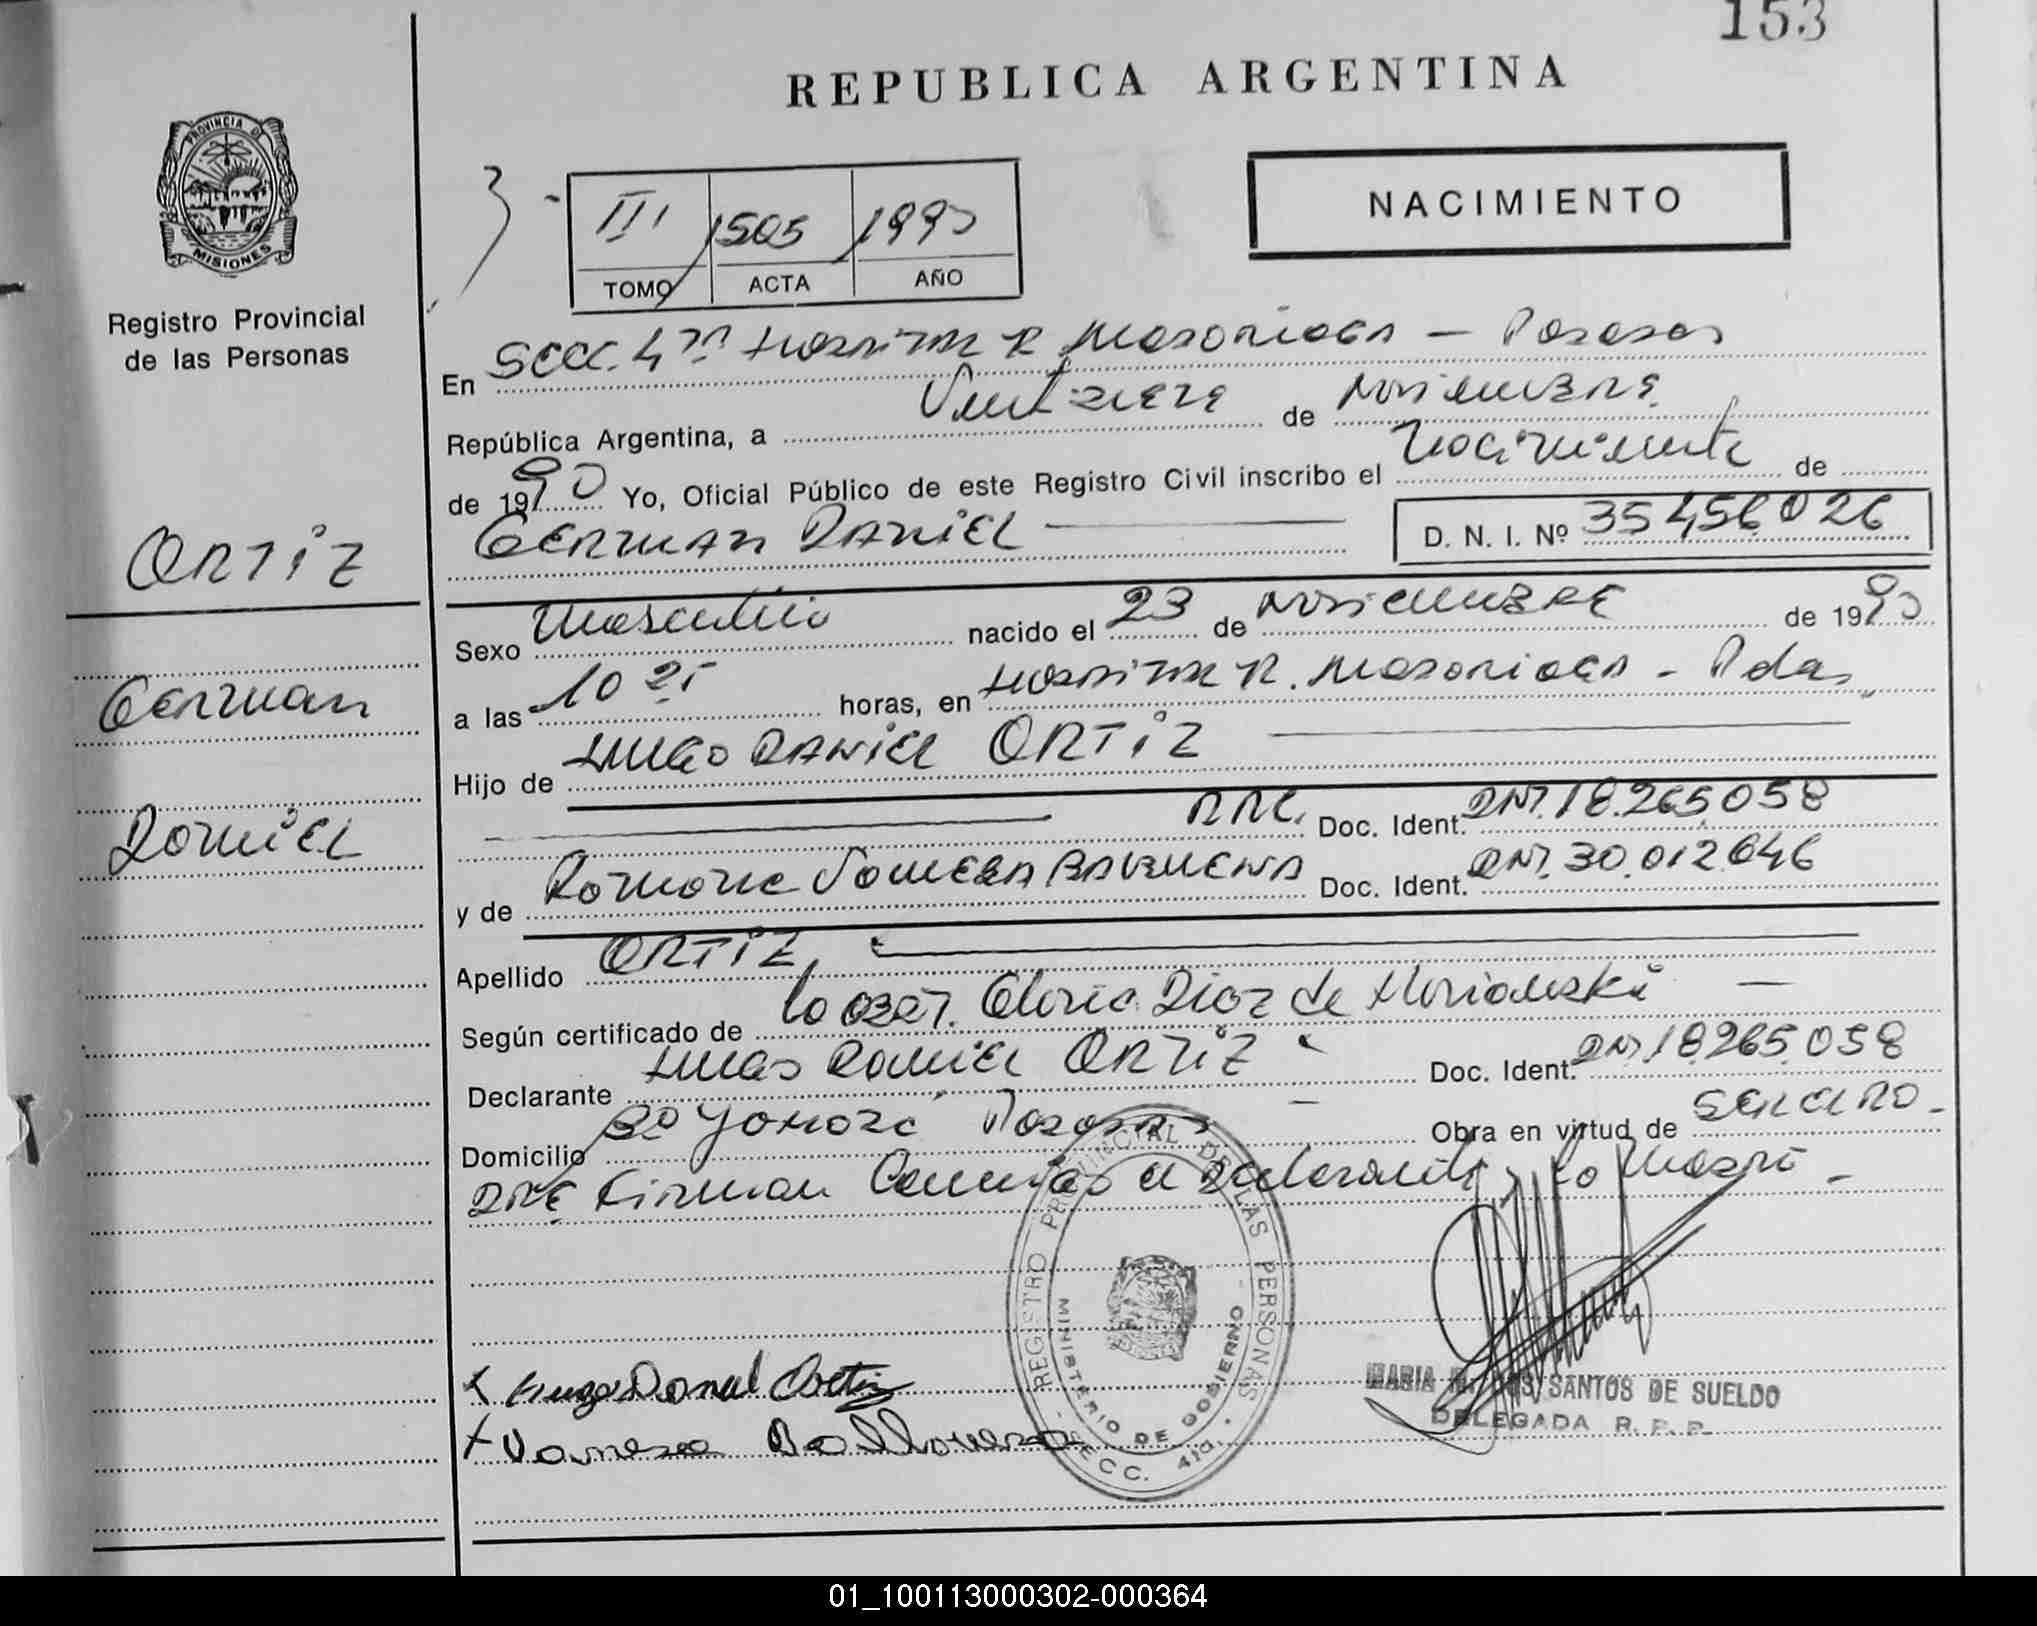 153
REPUBLICA ARGENTINA
PROVINCIA DE
MISIONES
Registro Provincial
de las Personas
NACIMIENTO
III 1505 1990
TOMO ACTA AÑO
En Secc. 4ta Hospital R. Madariaga - Posadas
República Argentina, a Veintisiete de Noviembre
de 1990 Yo, Oficial Público de este Registro Civil inscribo el Nacimiento de
GERMAN DANIEL D. N. I. Nº 35456026
ORTIZ
German
Daniel
Sexo Masculino nacido el 23 de Noviembre de 1990
a las 10 25 horas, en Hospital R. Madariaga - Pdas
Hijo de HUGO DANIEL ORTIZ
ARG. Doc. Ident. DNI. 18.265.058
y de Ramona BALBUENA Doc. Ident. DNI. 30.012.646
Apellido ORTIZ
Según certificado de la Obst. Gloria Diaz de
Declarante Hugo Daniel ORTIZ Doc. Ident. DNI 18.265.058
Domicilio Bº Posadas Obra en virtud de SER EL PADRE
Firman el declarante y la Madre -
REGISTRO PROVINCIAL DE LAS PERSONAS
MINISTERIO DE GOBIERNO
SECC. 4ta.
x Hugo Daniel Ortiz
x Vanesa
MARIA DOS SANTOS DE SUELDO
DELEGADA R. P. P.
01_100113000302-000364